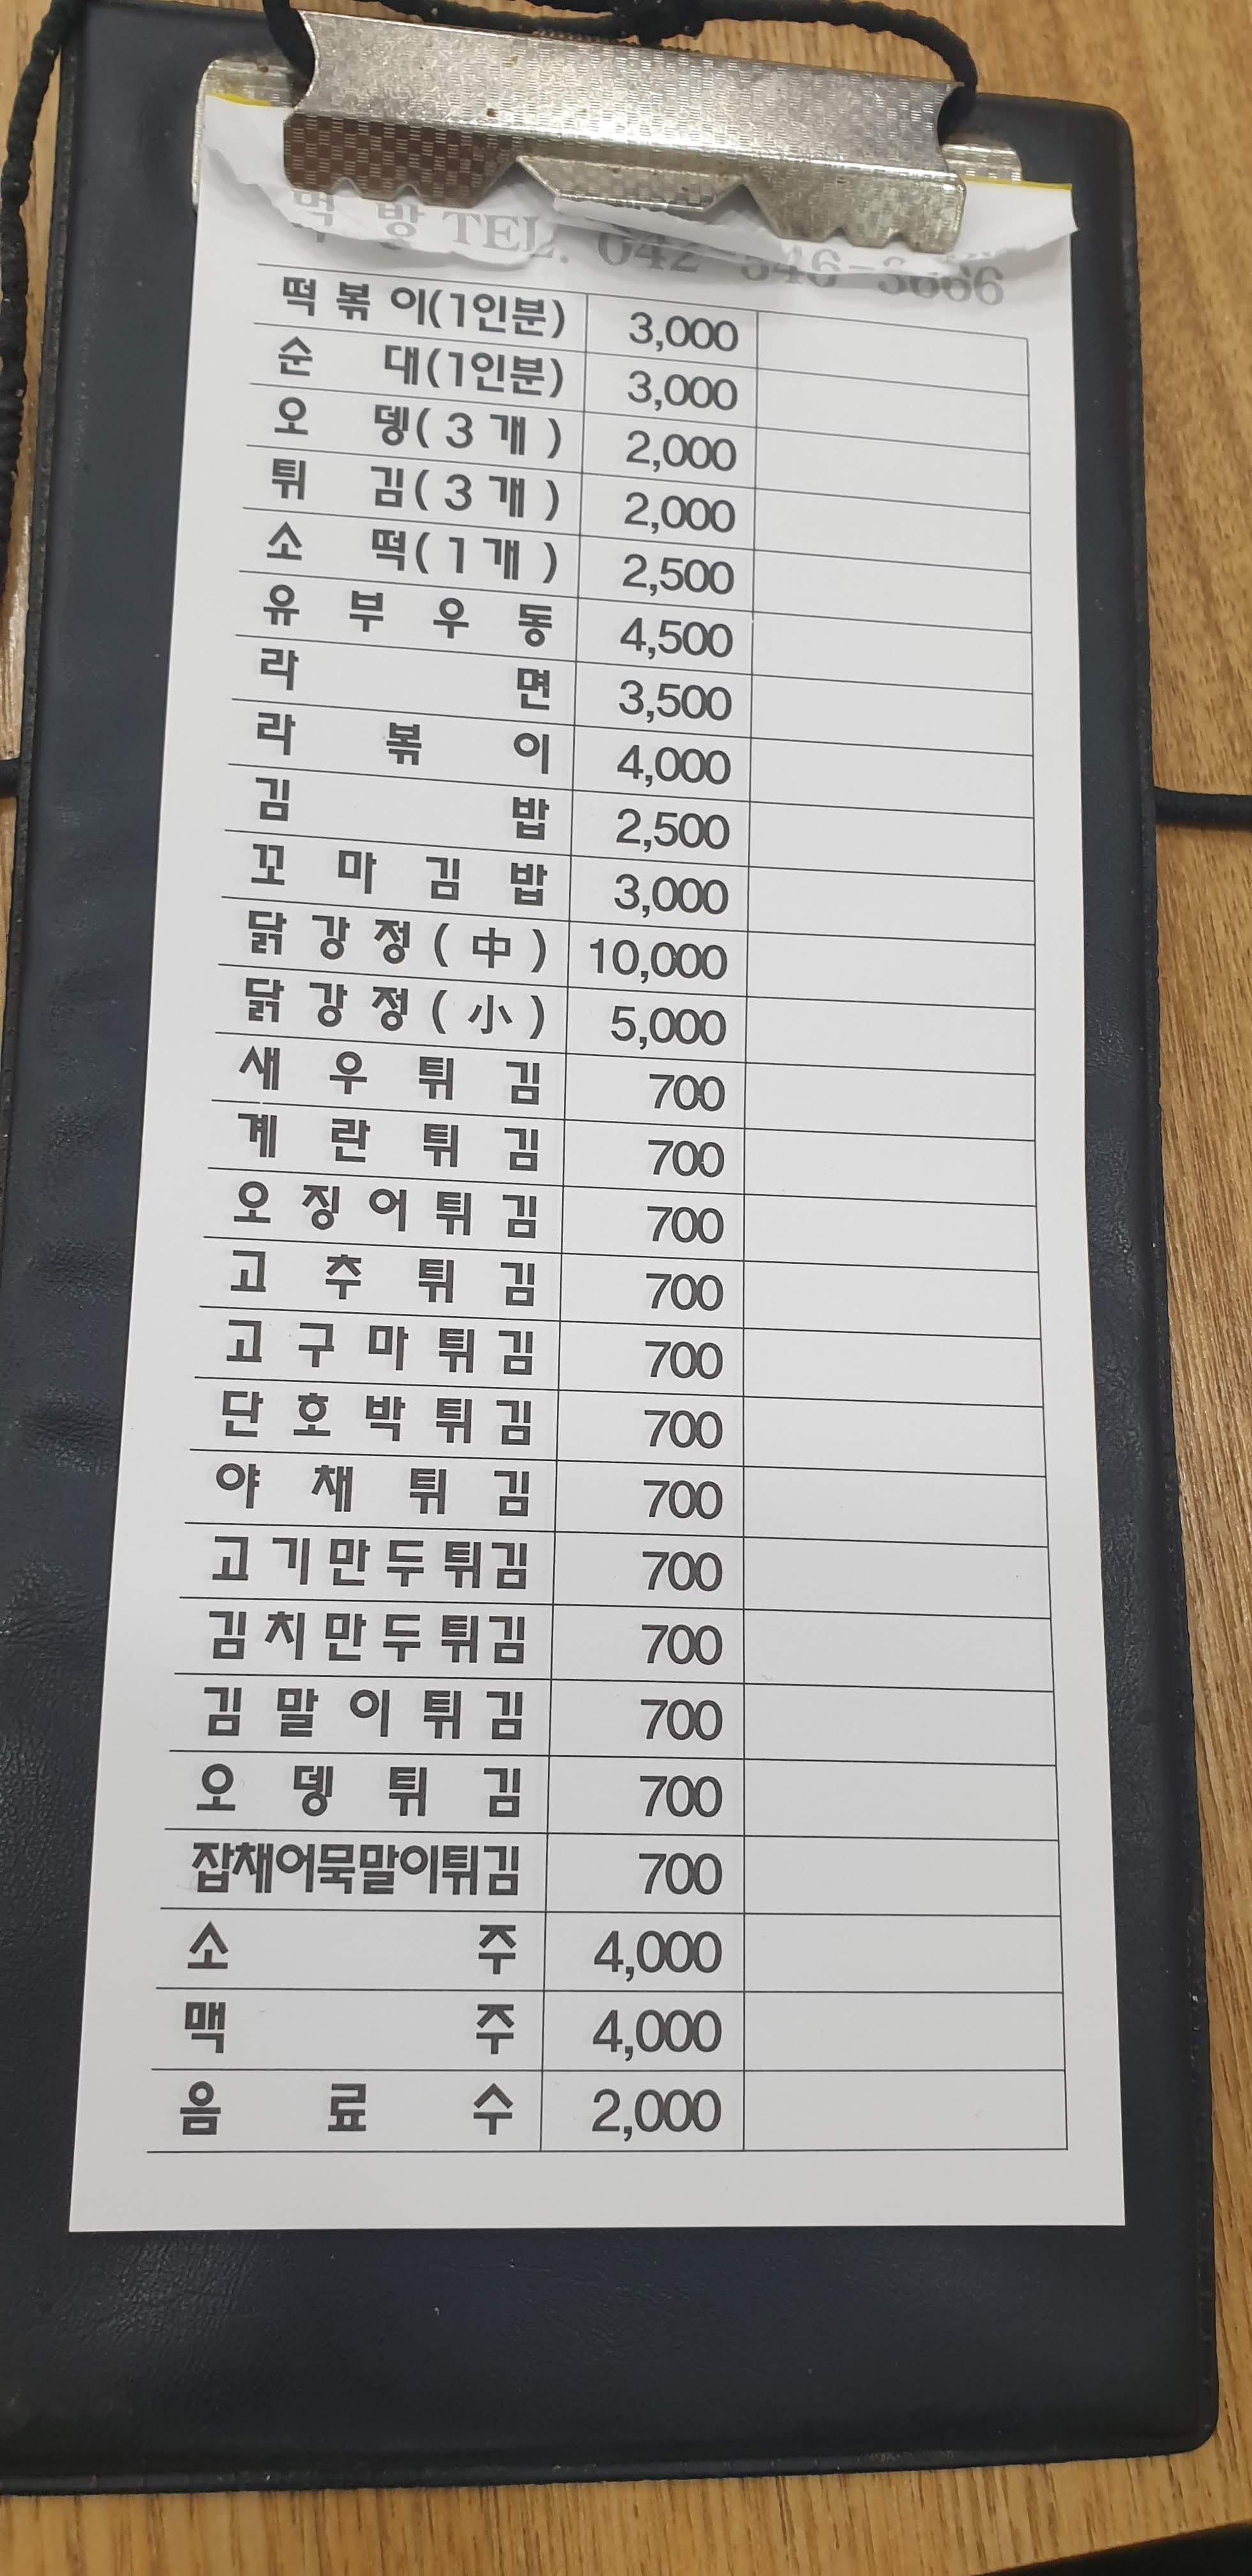 먹 방 TEL. 042-546-3666
떡볶이(1인분) 3,000
순대(1인분) 3,000
오뎅(3개) 2,000
튀김(3개) 2,000
소떡(1개) 2,500
유부우동 4,500
라면 3,500
라볶이 4,000
김밥 2,500
꼬마김밥 3,000
닭강정(中) 10,000
닭강정(小) 5,000
새우튀김 700
계란튀김 700
오징어튀김 700
고추튀김 700
고구마튀김 700
단호박튀김 700
야채튀김 700
고기만두튀김 700
김치만두튀김 700
김말이튀김 700
오뎅튀김 700
잡채어묵말이튀김 700
소주 4,000
맥주 4,000
음료수 2,000